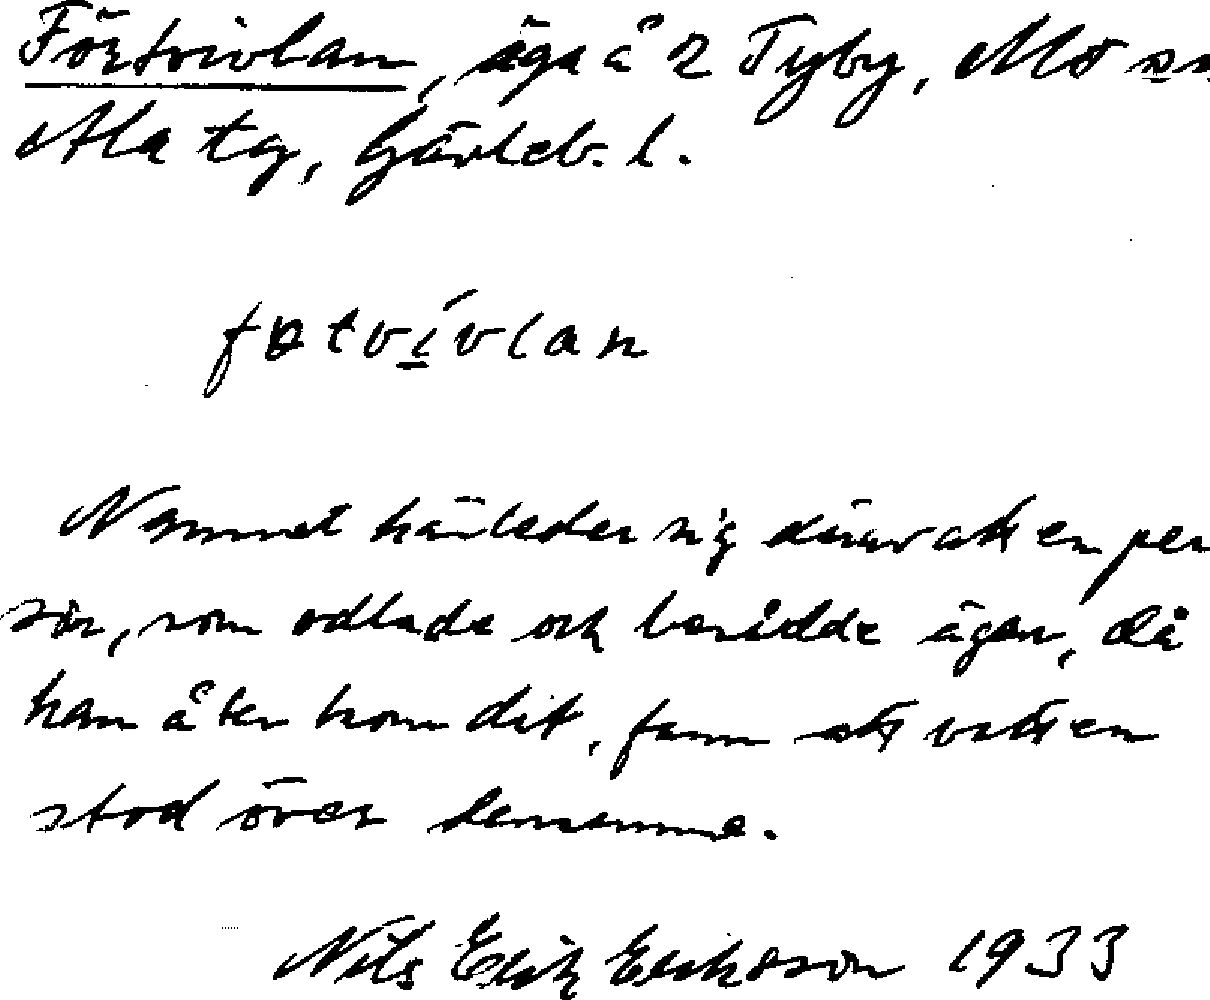 Förtvivlan, äga å 2 Tyby, Mo sn
Ala tg, Gävleb. l.
fɵtvívlan
Namnet härleder sig därav att en per
son, som odlade och besådde ägan, då
han åter kom dit, fann att vatten
stod över densamma.
Nils Erik Eriksson 1933